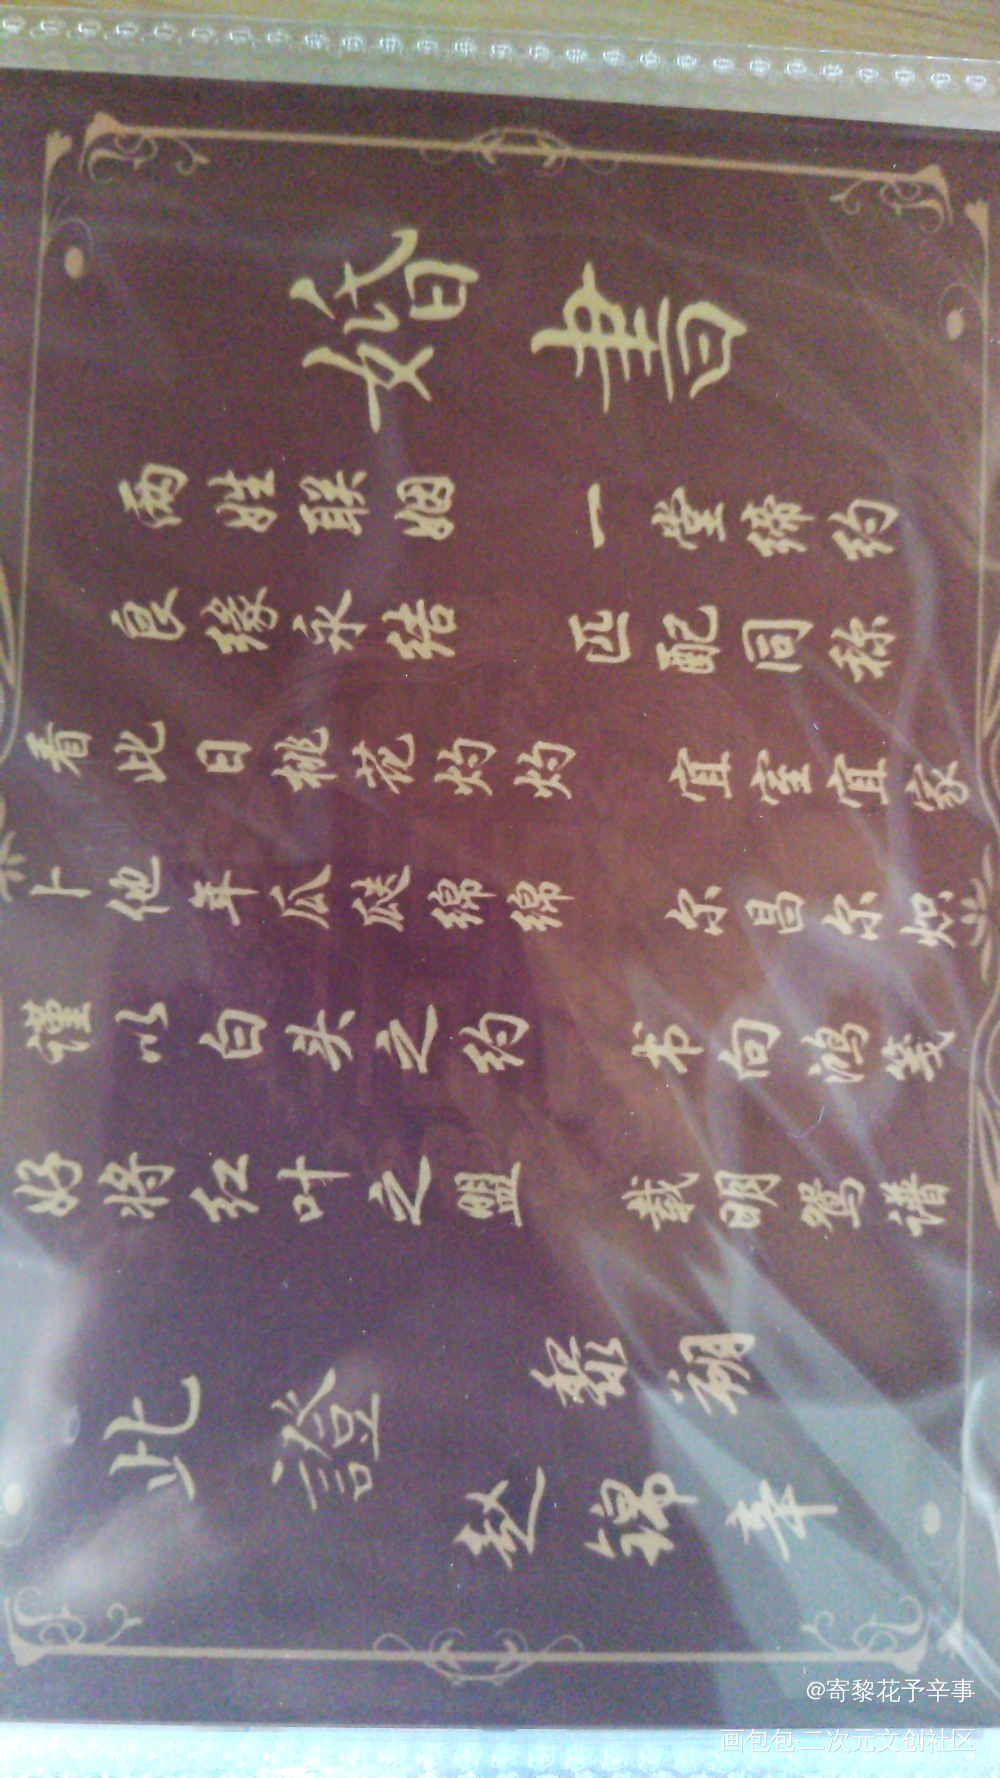 婚書
两姓联姻 一堂缔约
良缘永结 匹配同称
看此日桃花灼灼 宜室宜家
卜他年瓜瓞绵绵 尔昌尔炽
谨以白头之约 书向鸿笺
好将红叶之盟 载明鸳谱
此證
黎朔
赵锦辛
@寄黎花予辛事
画包包·二次元文创社区